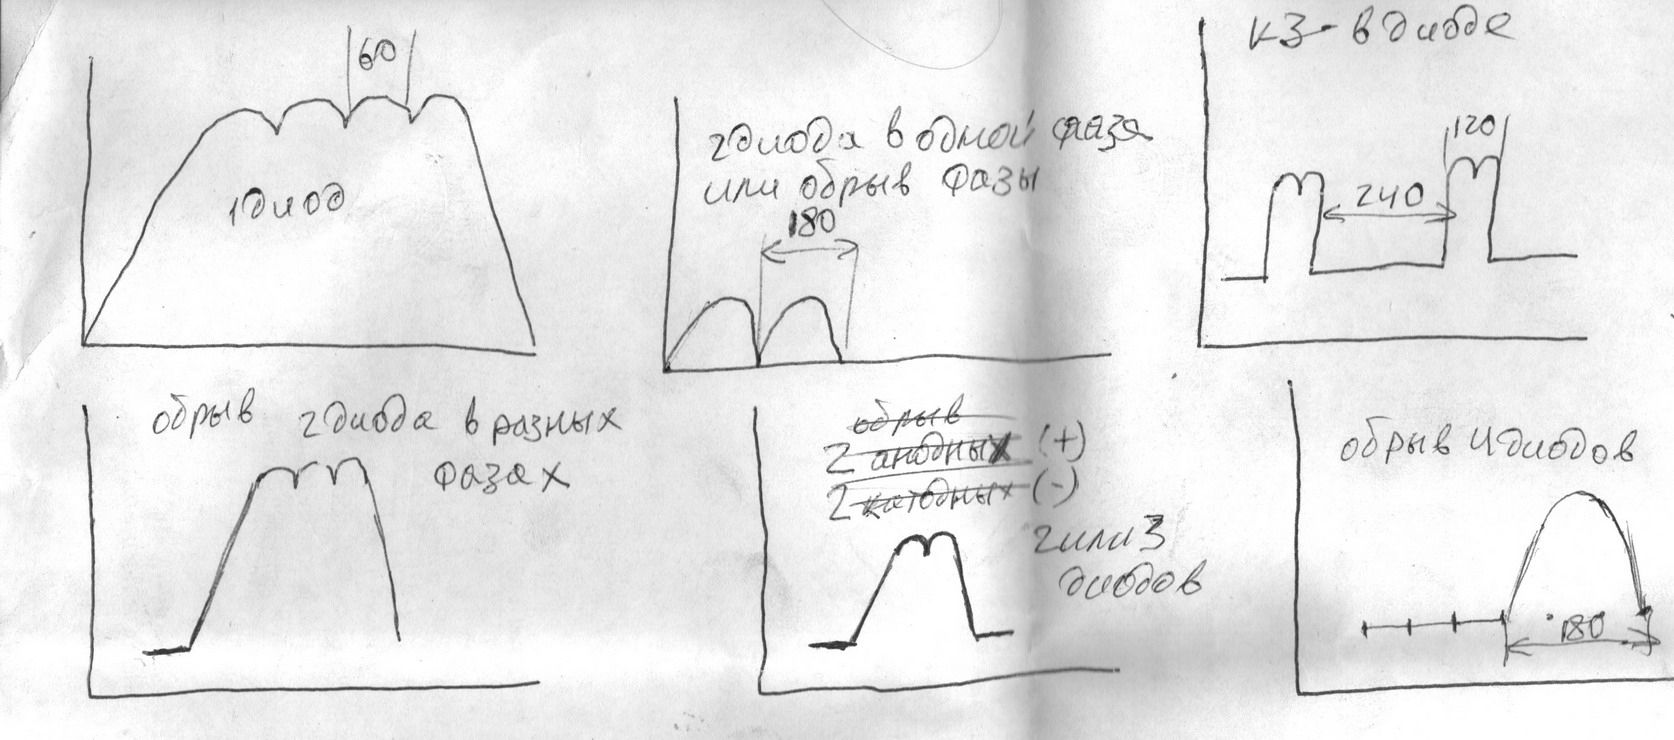 60
1 диод
2 диода в одной фазе
или обрыв фазы
180
КЗ - в диоде
120
240
обрыв 2 диода в разных
фазах
обрыв
2 анодных (+)
2 катодных (-)
2 или 3
диодов
обрыв 4 диодов
180